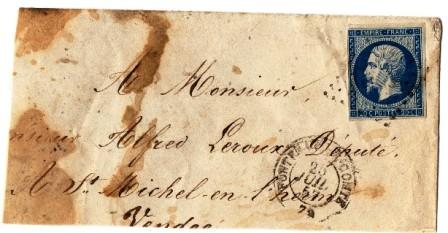 EMPIRE FRANC
20 C POSTES 20 C
A Monsieur,
Monsieur Alfred Leroux, Député,
A St Michel-en-l'herm
Vendée
FONTENAY-LE-COMTE
23
JUIL
57
79